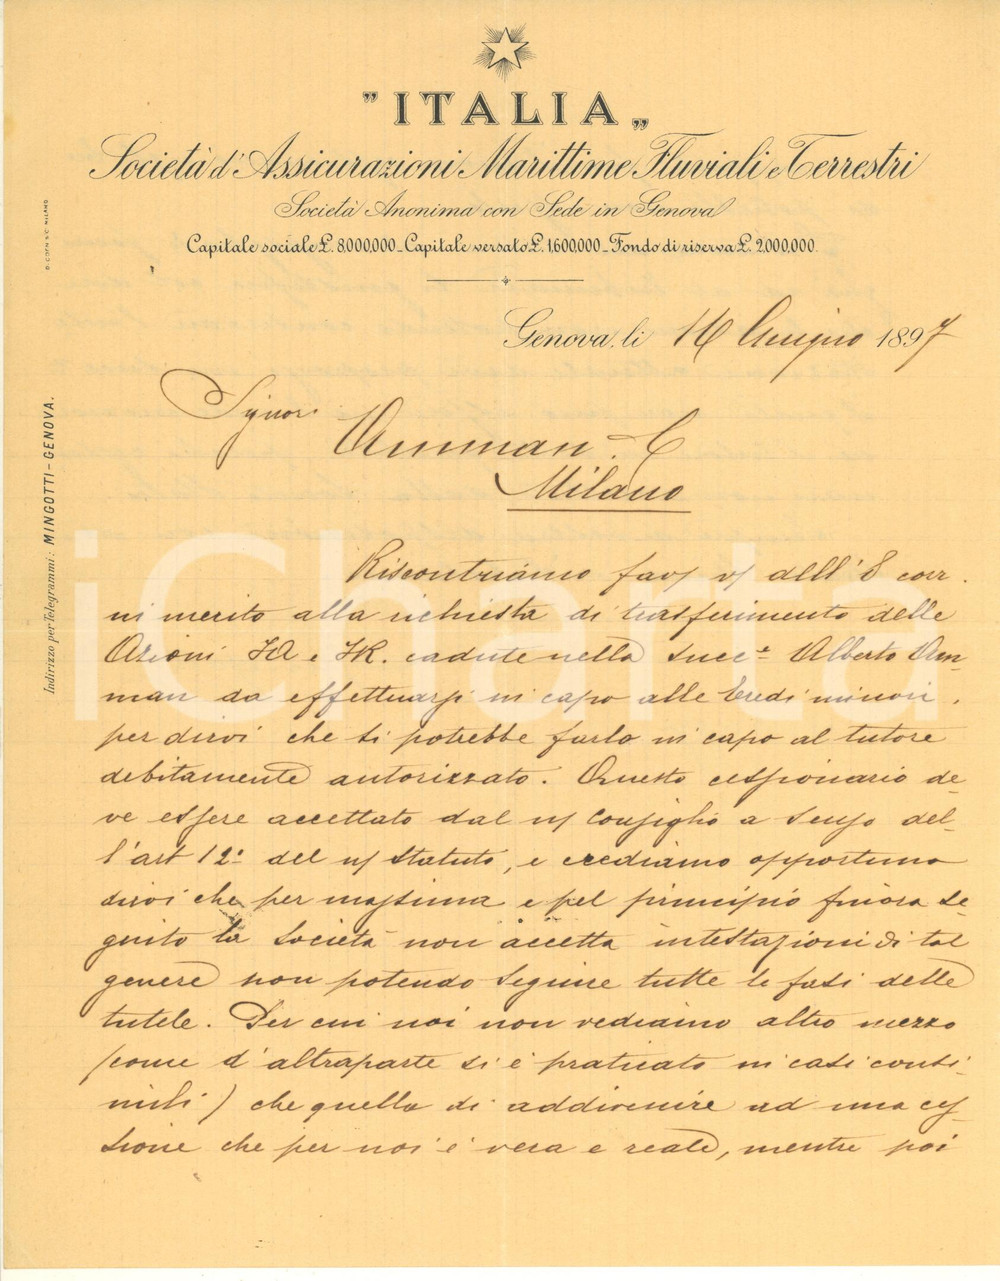 "ITALIA"
Società d'Assicurazioni Marittime Fluviali e Terrestri
Società Anonima con Sede in Genova
Capitale sociale £. 8.000,000 _ Capitale versato £. 1.600,000 _ Fondo di riserva £. 2,000,000.
Genova, li 14 Giugno 1897
Signori
Amman & C
Milano
Riscontriamo fav/ v/ dell'8 corr.
in merito alla richiesta di trasferimento delle
Azioni e cadute nella succ.e Alberto Am-
man da effettuarsi in capo alle Eredi minori,
per dirvi che si potrebbe farlo in capo al tutore
debitamente autorizzato. Questo cessionario de-
ve essere accettato dal n/ Consiglio a senso del-
l'art 12° del n/ statuto, e crediamo opportuno
dirvi che per massima e pel principio finora se-
guito la società non accetta intestazioni di tal
genere non potendo seguire tutte le fasi delle
tutele. Per cui noi non vediamo altro mezzo
(come d'altraparte si è praticato in casi consi-
mili) che quello di addivenire ad una ces-
sione che per noi è vera e reale, mentre poi
Indirizzo per Telegrammi: MINGOTTI - GENOVA.
iCharta